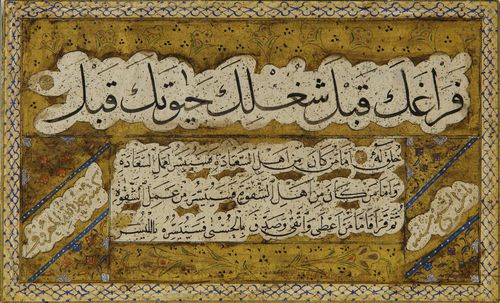 فراغك قبل شغلك حيوتك قبل
خلق له اما من كان من اهل السعادة فسييسر لعمل السعادة
واما من كان من اهل الشقوة فسييسر عمل الشقوة
ثم قرأ فاما من اعطى واتقى وصدق بالحسنى فسنيسره لليسر